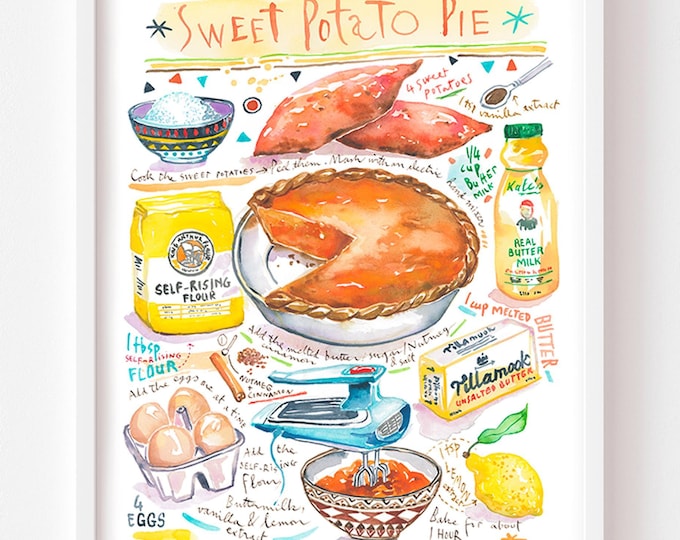 SWEET POTATO PIE
4 SWEET
POTATOES
1 tsp vanilla extract
COOK THE SWEET POTATOES → Peel them. Mash with an electric
hand mixer
1/4
CUP
BUTTER
MILK
Kate's
REAL
BUTTER
MILK
SELF-RISING
FLOUR
1 tbsp
SELF-RISING
FLOUR
Add the melted butter, sugar, Nutmeg
cinnamon & salt
1 cup MELTED
BUTTER
NUTMEG
+ CINNAMON
Tillamook
Tillamook
UNSALTED BUTTER
Add the eggs one at a time
Add the
SELF-RISING
Flour
Buttermilk,
vanilla & lemon
extract
1 tsp
LEMON
Bake for about
1 HOUR
4
EGGS